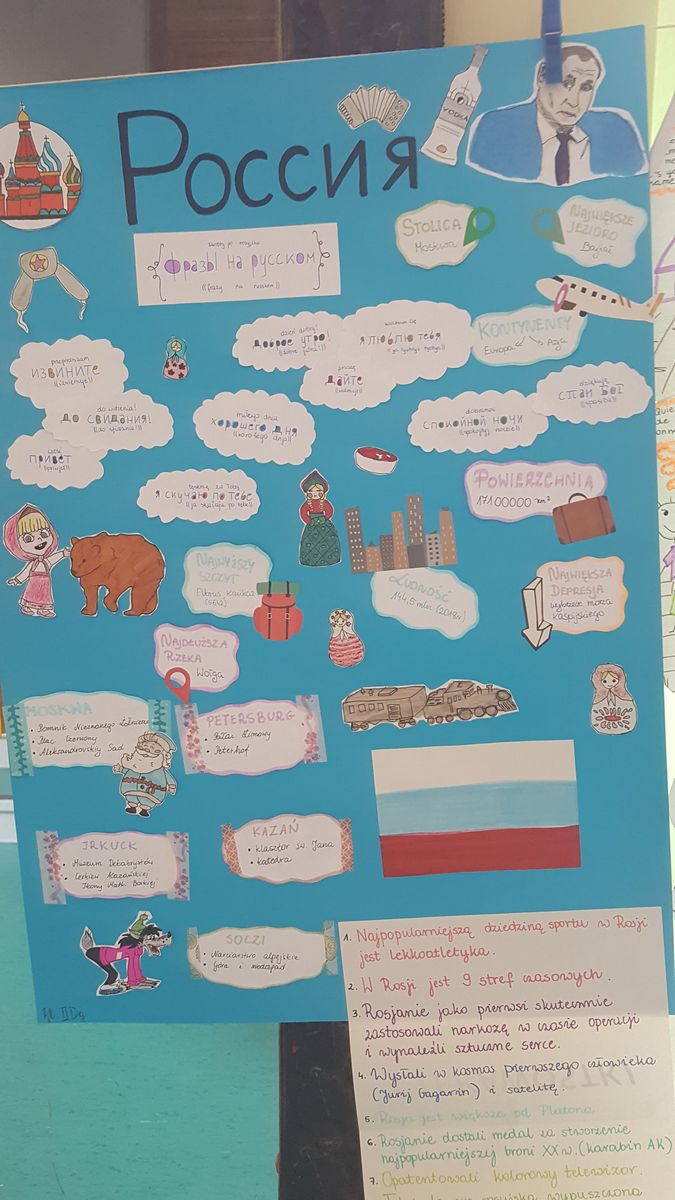 Россия
VODKA
STOLICA
Moskwa
NAJWIĘKSZE
JEZIORO
Bajkał
zwroty po rosyjsku
фразы на русском
((frazy na ruskom))
KONTYNENTY
Europa Azja
dzień dobry!
доброе утро!
я люблю тебя
proszę
дайте
przepraszam
извините
((izwinitje))
do widzenia!
до свидания!
cześć
привет
miłego dnia
хорошего дня
dobranoc
спокойной ночи
dziękuję
tęsknię za Tobą
я скучаю по тебе
POWIERZCHNIA
17100000 km²
NAJWYŻSZY
SZCZYT
(5642)
LUDNOŚĆ
144,5 mln (2018r.)
NAJWIĘKSZA
DEPRESJA
wybrzeże morza
Kaspijskiego
NAJDŁUŻSZA
RZEKA
Wołga
MOSKWA
• Pomnik Nieznanego Żołnierza
• Plac Czerwony
• Aleksandrovskiy Sad
PETERSBURG
• Pałac Zimowy
• Peterhof
IRKUCK
• Muzeum Dekabrystów
• Cerkiew Kazańskiej
Ikony Matki Boskiej
KAZAŃ
• klasztor św. Jana
• katedra
SOCZI
• Narciarstwo alpejskie
• Góra i wodospad
kl. II Dg
1. Najpopularniejszą dziedziną sportu w Rosji
jest lekkoatletyka.
2. W Rosji jest 9 stref czasowych.
3. Rosjanie jako pierwsi skutecznie
zastosowali narkozę w czasie operacji
i wynaleźli sztuczne serce.
4. Wysłali w kosmos pierwszego człowieka
(Jurij Gagarin) i satelitę.
5. Rosja jest większa od Plutona.
6. Rosjanie dostali medal za stworzenie
najpopularniejszej broni XX w. (karabin AK)
7. Opatentowali kolorowy telewizor.